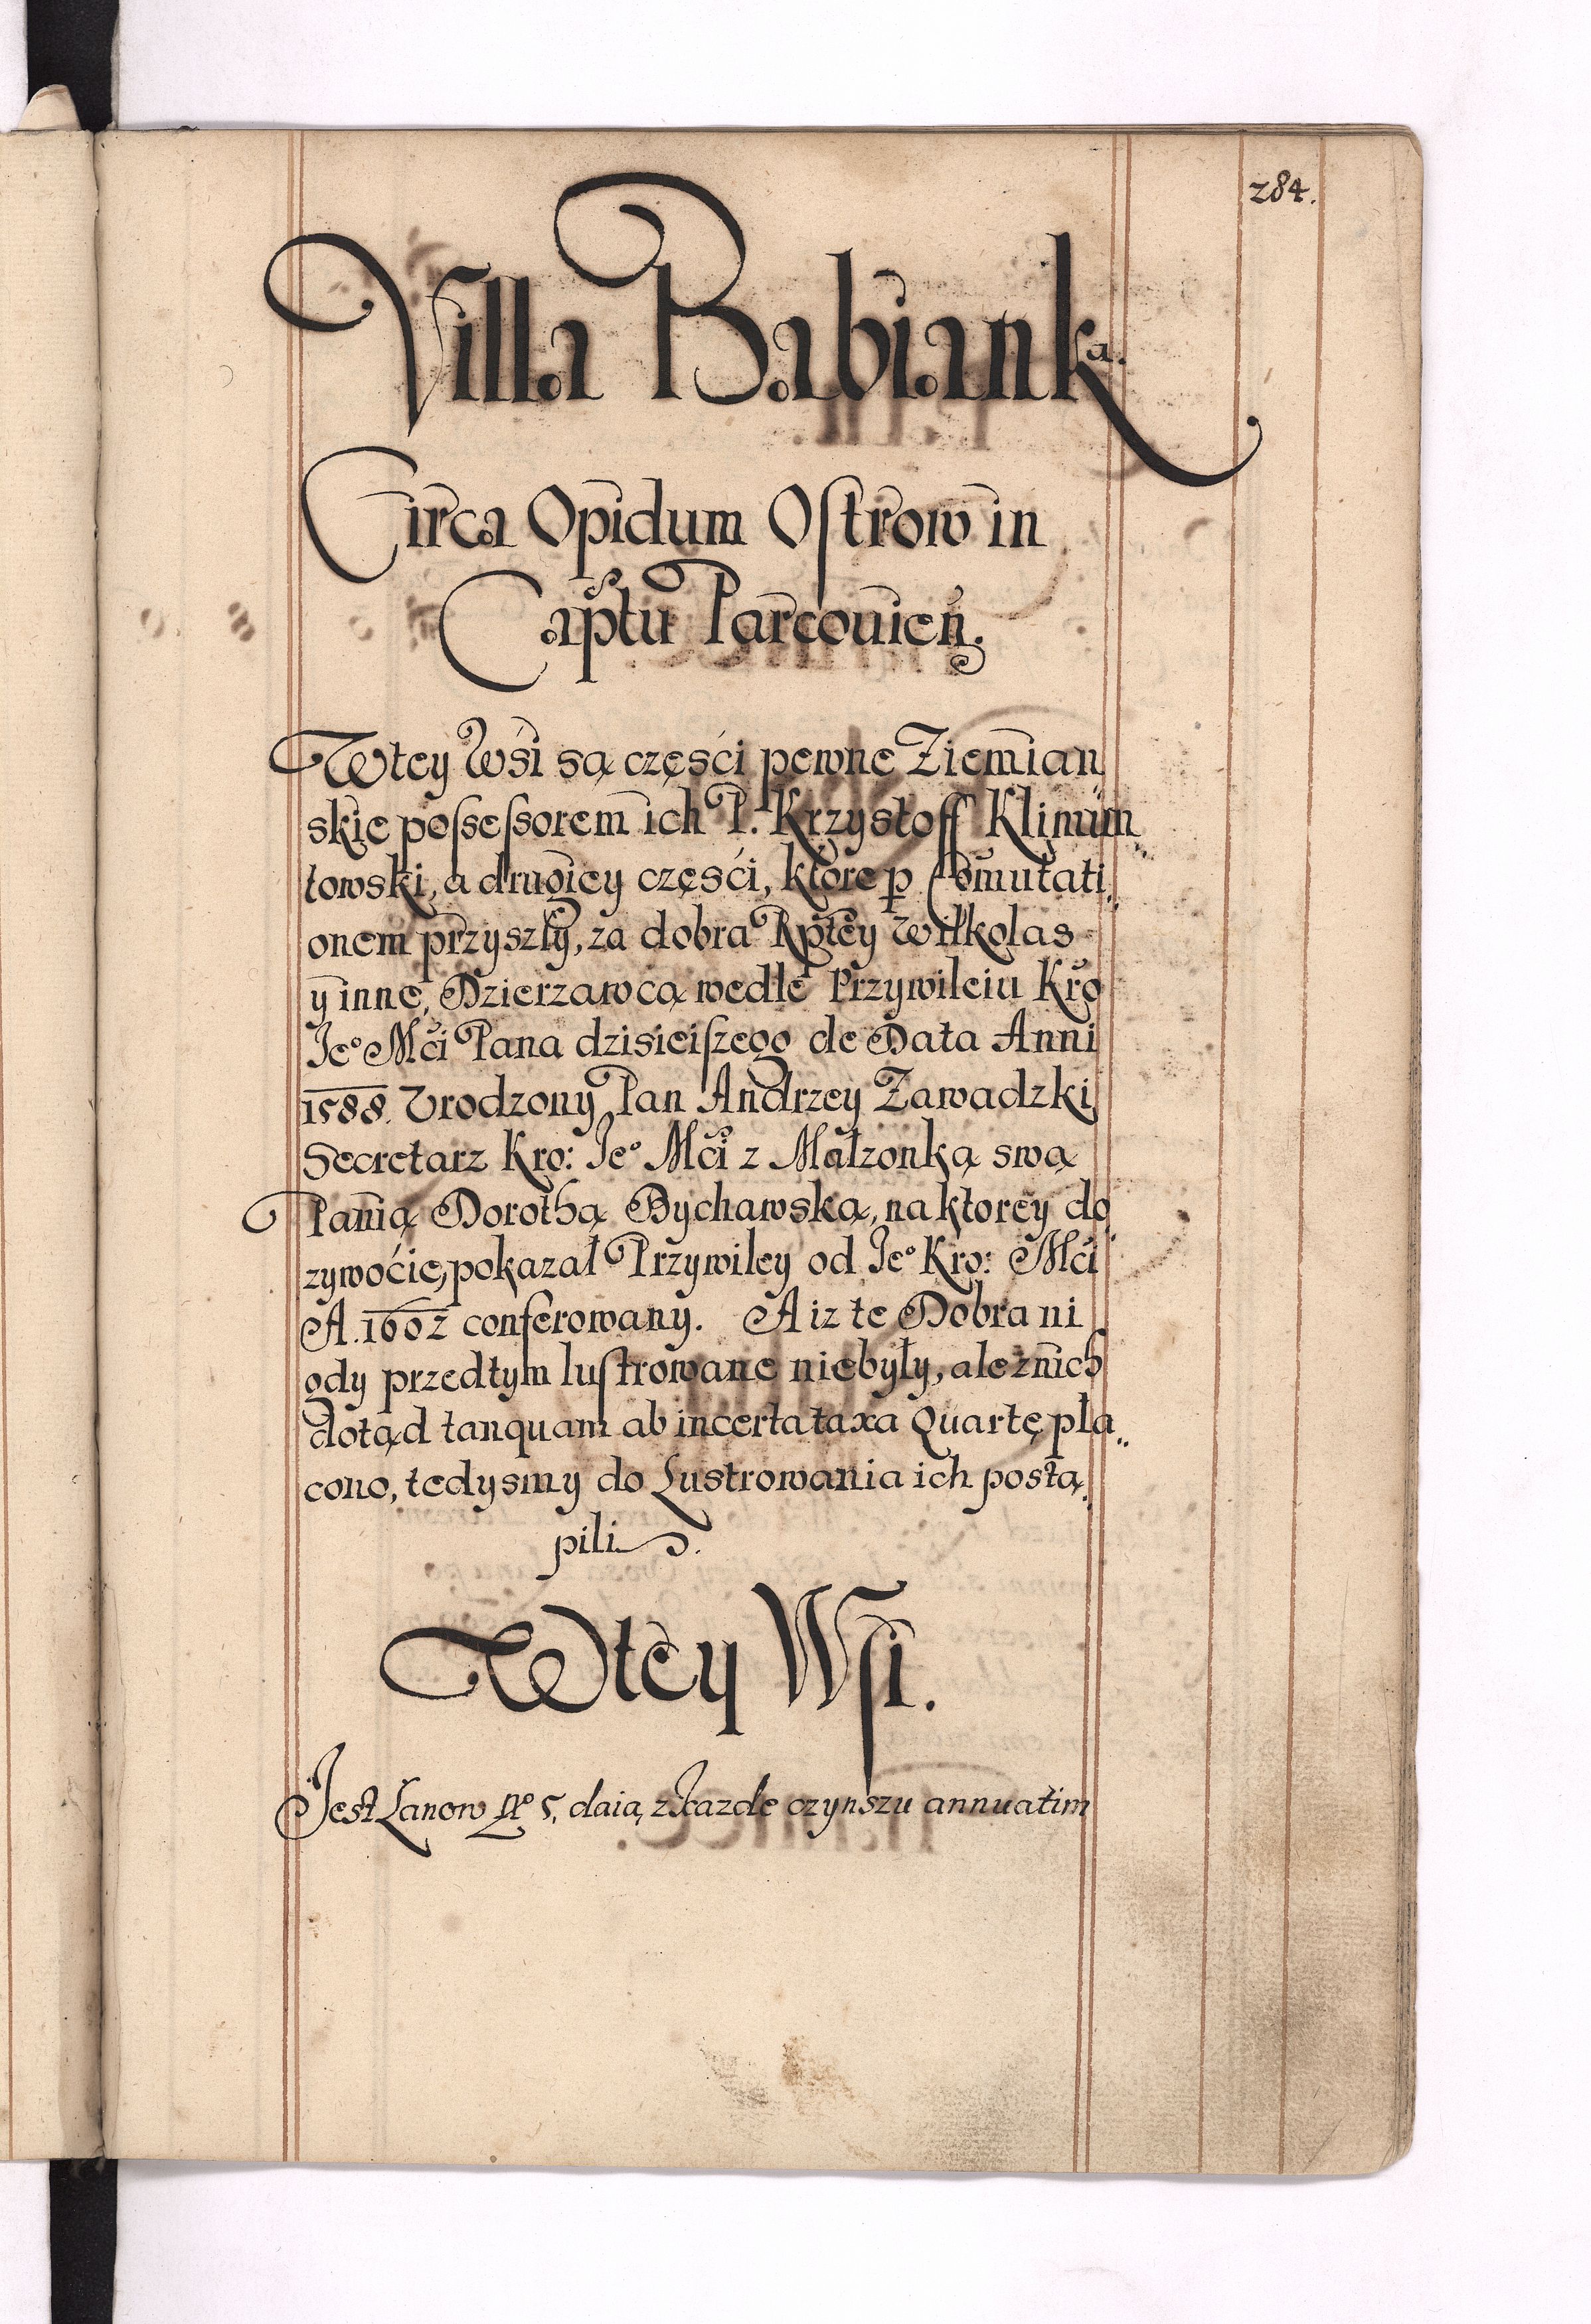 284.
Villa Babianka.
Circa Opidum Ostrow in
Capt̃u Parcouień.
W tey Wśi są częśći pewne Ziemian
skie possessorem ich P. Krzystoff Klimun„
towski, a drugiey częśći, ktore p Comutati„
onem przyszły, za dobra Rptey Wilkolas
y inne, Dzierzawcą wedle Przywileiu Kro
Jeº Mći Pana dzisieiszego de Data Anni
1588. Vrodzony Pan Andrzey Zawadzki
Secretarz Kro: Jeº Mći z Małzonką swą
Panią Dorothą Bychawską, na ktorey do
zywoćie, pokazał Przywiley od Jeº Kro: Mći
A. 1602 conferowany. A iz te Dobra ni
gdy przedtym lustrowane niebyły, ale znich
dotąd tanquam ab incerta taxa Quartę pła„
cono, tedysmy do Lustrowania ich postą„
pili.
W tey Wsi.
Jest Lanow Nº 5, daią z kazde czynszu annuatim